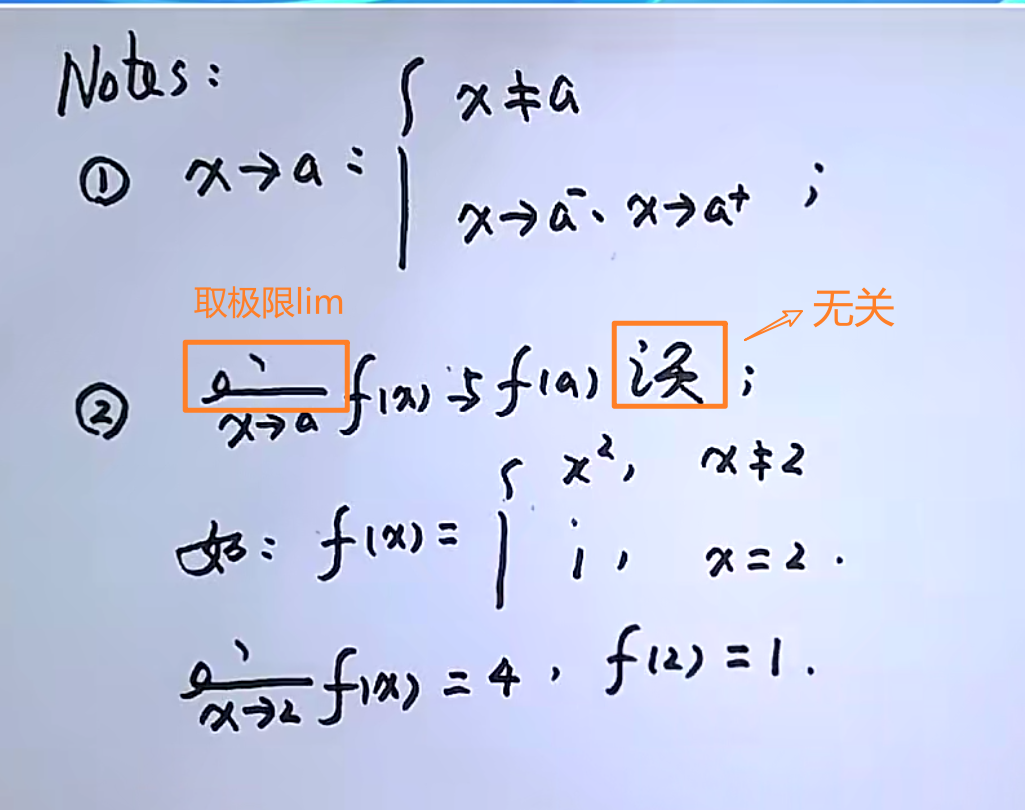 Notes:
① x→a: { x≠a
x→a⁻、x→a⁺ ;
取极限lim
无关
② lim x→a f(x) 与 f(a) 无关 ;
如: f(x) = { x², x≠2
1, x=2.
lim x→2 f(x) = 4, f(2) = 1.